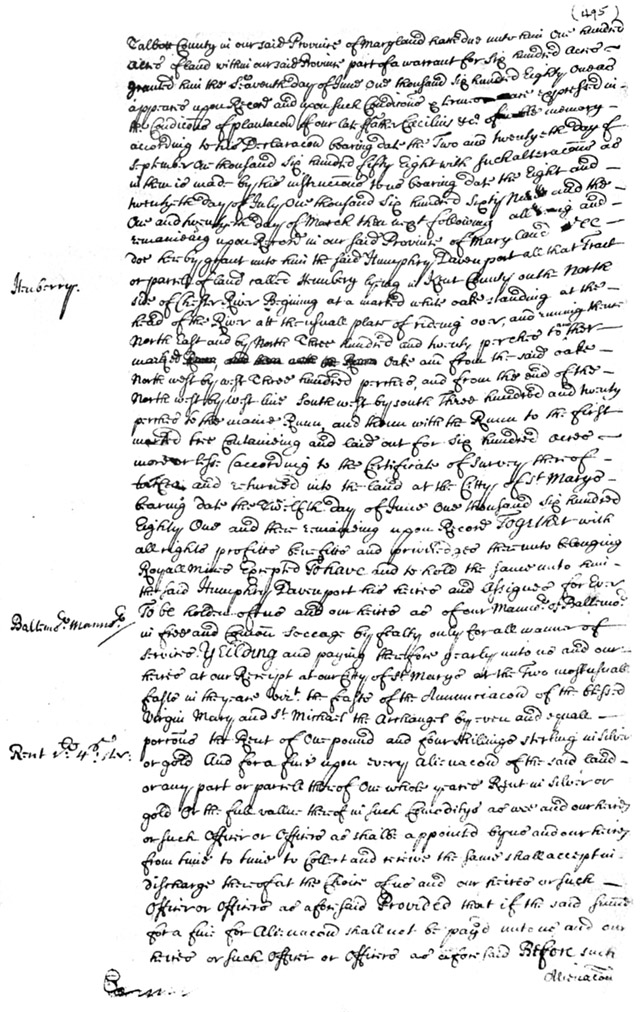 (495)
Talbott County in our said Province of Maryland hath due unto him One hundred
Acres of land within our said Province part of a warrant for Six hundred Acres
granted him the Seaventh day of June One thousand Six hundred Eighty One as
appeares upon Record and upon such Condicons & termes are expressed in
the Condicons of plantacon of our late father Cecilius &c of memory
according to his Declaracon bearing date the Two and twentyeth day of
September One thousand Six hundred fifty Eight with such alteracons as
in them is made by his instruccons to us bearing date the Eight and
twentyeth day of July One thousand Six hundred Sixty and the
One and twentyeth day of March then next following all and
remaineing upon Record in our said Province of Maryland Wee
doe hereby grant unto him the said Humphry Davenport all that Tract
Henberry.
or parcell of land called Henbery lying in Kent County on the North
side of Chester River Begining at a marked white oake standing at the
head of the River att the usuall place of rideing over, and running thence
North East and by North Three hundred and twenty perches to another
marked Oake and from the said oake
North west by west Three hundred perches, and from the end of the
North west by west line South west by south Three hundred and twenty
perches to the maine Runn, and then with the Runn to the first
marked tree Containeing and laid out for Six hundred acres
more or lesse (according to the Certificate of Survey thereof
and returned into the land at the Citty of St Maryes
bearing date the Twelfth day of June One thousand Six hundred
Eighty One and there remaineing upon Record Together with
all rights profitts benefitts and priviledges thereunto belonging
Royall Mines Excepted To have and to hold the same unto him
the said Humphry Davenport his heires and Assignes for Ever
Baltemore. Mannor.
To be holden of us and our heires as of our Mannor of Baltemore
in free and Comon Soccage by fealty only for all manner of
services Yeilding and paying therefore yearly unto us and our
heires at our Receipt at our City of St Marys at the Two most usuall
feasts in the yeare vizt. the feasts of the Annunciacon of the blessed
Virgin Mary and St Michael the Archangel by even and equall
Rent 1£ 4s ster:
porcons the Rent of One pound and four shillings sterling in silver
or gold And for a fine upon every Alienacon of the said land
or any part or parcell thereof One whole yeares Rent in Silver or
gold Or the full vallue thereof in such Comoditys as wee and our heires
or such Officer or Officers as shalbe appointed by us and our heires
from time to time to Collect and receive the same shall accept in
discharge thereof at the Choice of us and our heires or such
Officer or Officers as aforesaid Provided that if the said summe
for a fine for Alienacon shall not be payd unto us and our
heires or such Officer or Officers as aforesaid Before such
Alienacon